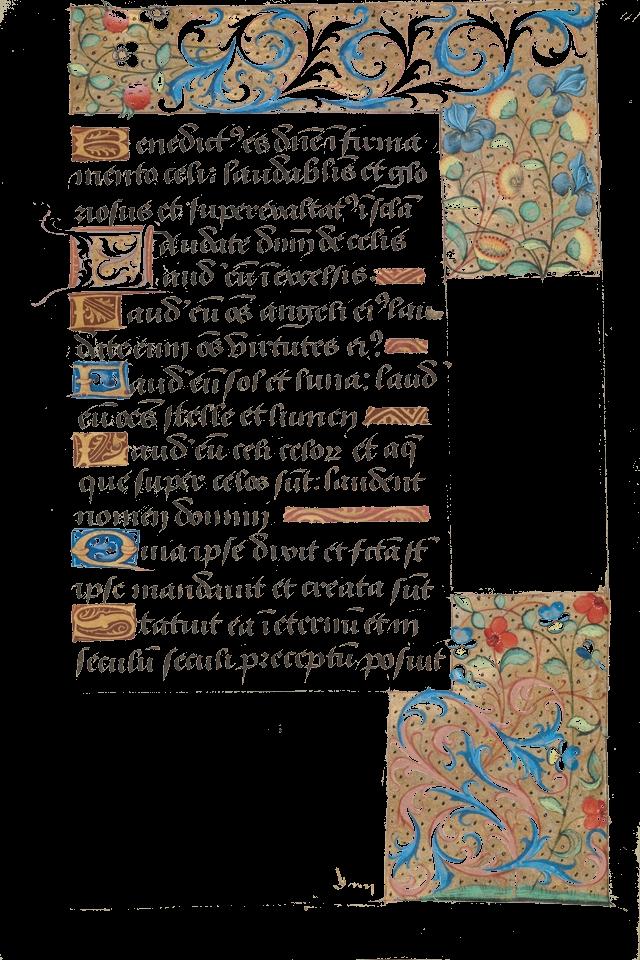 Benedict⁹ es dn̄e ī firma
mento celi: laudabilis et glo
riosus et superexaltat⁹ ī sclā
Laudate dnm̄ de celis
laud' eū ī excelsis
Laud' eū os̄ angeli ei⁹ lau
date eum os̄ virtutes ei⁹
Laud' eū sol et luna: laud'
eū oēs stelle et lumen
Laud' eū celi celoꝝ et aq̄
que super celos sūt: laudent
nomen domini
Quia ipse dixit et fc̄ta st̄
ipse mandavit et creata sūt
Statuit ea ī eternū et in
seculū seculi preceptū posuit